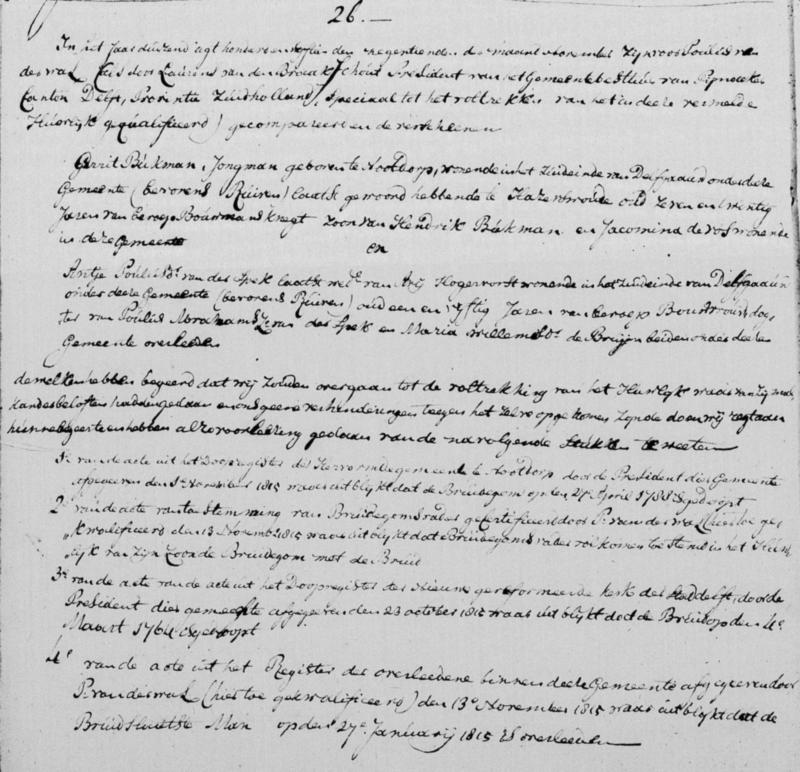 26.—
In het Jaar duizend agt honderd en vyftien den negentienden der maant November Zyn voor Poulis van
der wal Cais door Laurens van den Broek Schout President van het Gemeentebestuur van Pijnacker
Canton Delft, Provintie Zuidholland, speciaal tot het voltrekken van het in deeze vermelde
Huwlyk gequalificeerd) gecompareert en de verscheenen
Gerrit Bükman, Jongman geboren te Nootdorp, wonende in het Zuideinde van Delfgaauw onder deeze
Gemeente (bevorens Ruiven) laatst gewoond hebbende te Hazerswoude oud Zeven en twintig
Jaren van beroep Bouwmans knegt zoon van Hendrik Bükman en Jacomina de vos wonende
in deze Gemeente
en
Antje Poulis dr. van der Spek laatst wede. van Arij Hogervorst wonende in het Zuideinde van Delfgaauw
onder deeze Gemeente (bevorens Ruiven) oud een en vyftig Jaren van beroep Bouwvrouw dog
ter van Poulus Abrahams Z. van der Spek en Maria Willems dr. de Bruijn beiden onder deeze
Gemeente overleden
dewelken hebben begeerd dat wij zouden overgaan tot de voltrekking van het Huwlyk waar van zij mal,
kander beloften hadden gedaan en ons geene verhinderingen teegen het zelve opgekomen zynde doen wij regt aan
hunne begeerte en hebben alzo voorleezing gedaan van de navolgende stukken te weeten
1e. van de acte uit het Doopregister der Hervormde gemeente te Nootdorp door de President dier Gemeente
afgegeven den 1e November 1815 waar uit blykt dat de Bruidegom op den 27 April 1788 is gedoopt
2e. van de acte van toestemming van Bruidegoms vader gecertificeerd door P. van der wal (hier toe ge,
kwalificeerd den 13 November 1815 waar uit blykt dat Bruidegoms vader volkomen toestemd in het Huw,
lijk van zyn Zoon de Bruidegom met de Bruid
3e. van de acte van de acte uit het Doopregister der Nieuwe gereformeerde kerk der stad delft, door de
President dier gemeente afgegeven den 23 october 1815 waar uit blykt dat de Bruid op den 4e
Maart 1764 is gedoopt
4e. van de acte uit het Register der overledene binnen deeze Gemeente afgegeven door
P. van der wal (hier toe gekwalificeerd) den 13e November 1815 waar uit blykt dat de
Bruids laatste Man op den 27e Januarij 1815 is overleeden